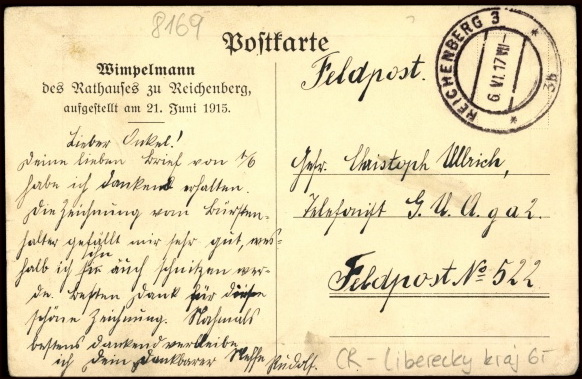 8169
Postkarte
Wimpelmann
des Rathauses zu Reichenberg,
aufgestellt am 21. Juni 1915.
Feldpost.
REICHENBERG 3
6. VI. 17 VII-
3b
Lieber Onkel!
Deine lieben Brief von 1/6
habe ich dankend erhalten.
Die Zeichnung vom Bürsten-
halter gefällt mir sehr gut, wes-
halb ich ihn auch schnitzen wer-
de. Besten Dank für diese
schöne Zeichnung. Nochmals
bestens dankend verbleibe
ich Dein dankbarer Neffe
Rudolf.
Gefr. Christoph Ullrich,
Telefonist G. U. A. 
Feldpost No 522
CR - Liberecky kraj 6-